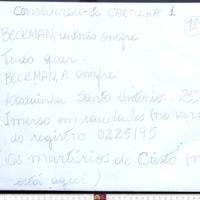 Considerou-se CARTILHA 1
BECKMAN, antônio onofre
Tudo quer.
BECKMAN, A. onofre
Ladainha Santo antônio. 233
Imerso em saudades (no ver
do registro 0225/95
(os martírios de Cristo (n
está aqui)